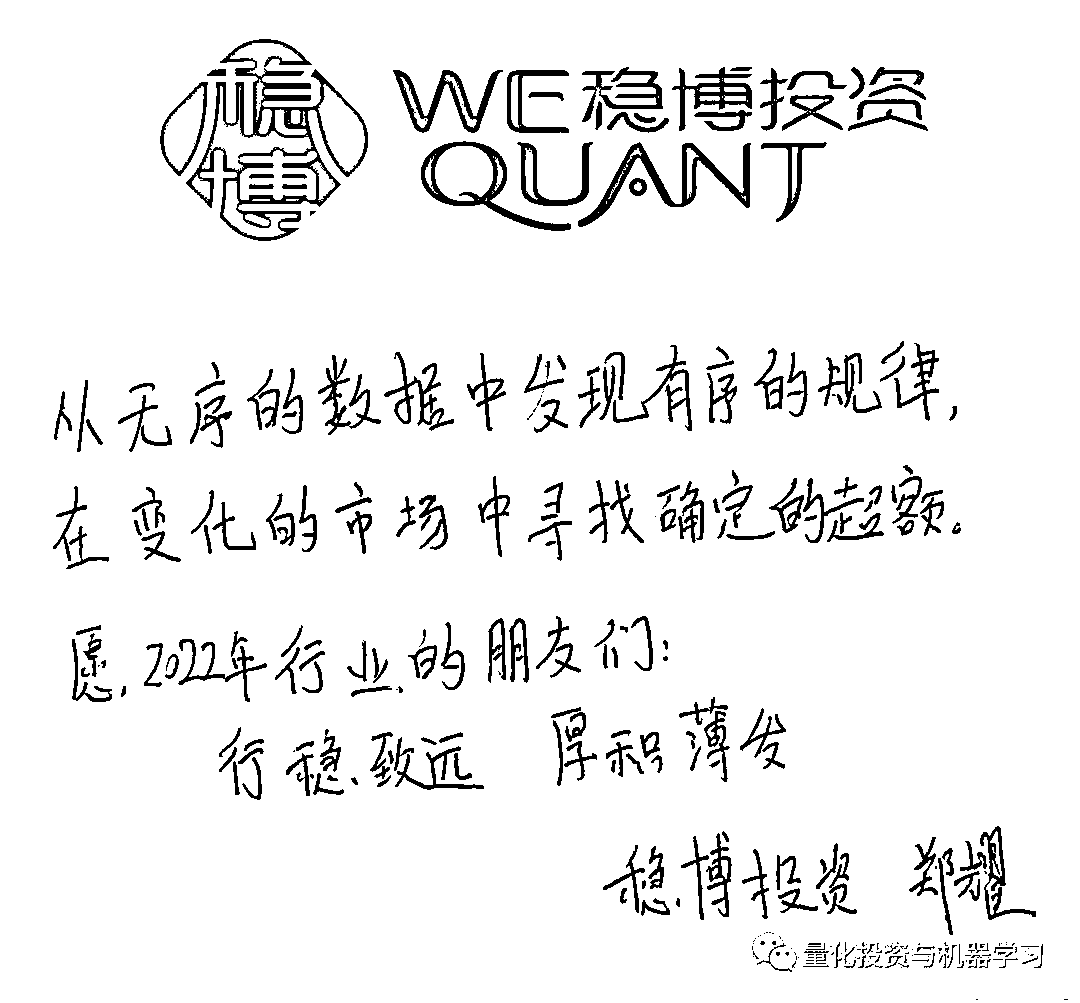 稳博
WE稳博投资
QUANT
从无序的数据中发现有序的规律,
在变化的市场中寻找确定的超额。
愿,2022年行业的朋友们:
行稳致远 厚积薄发
稳博投资 郑耀
量化投资与机器学习